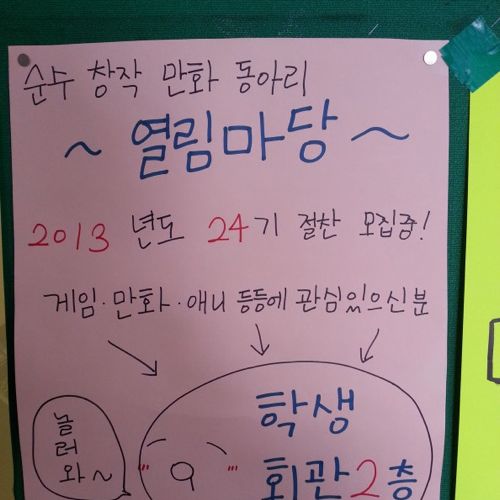 순수 창작 만화 동아리
~ 열림마당 ~
2013 년도 24기 절찬 모집중!
게임·만화·애니 등등에 관심있으신분
학생
회관 2층
놀
러
와~